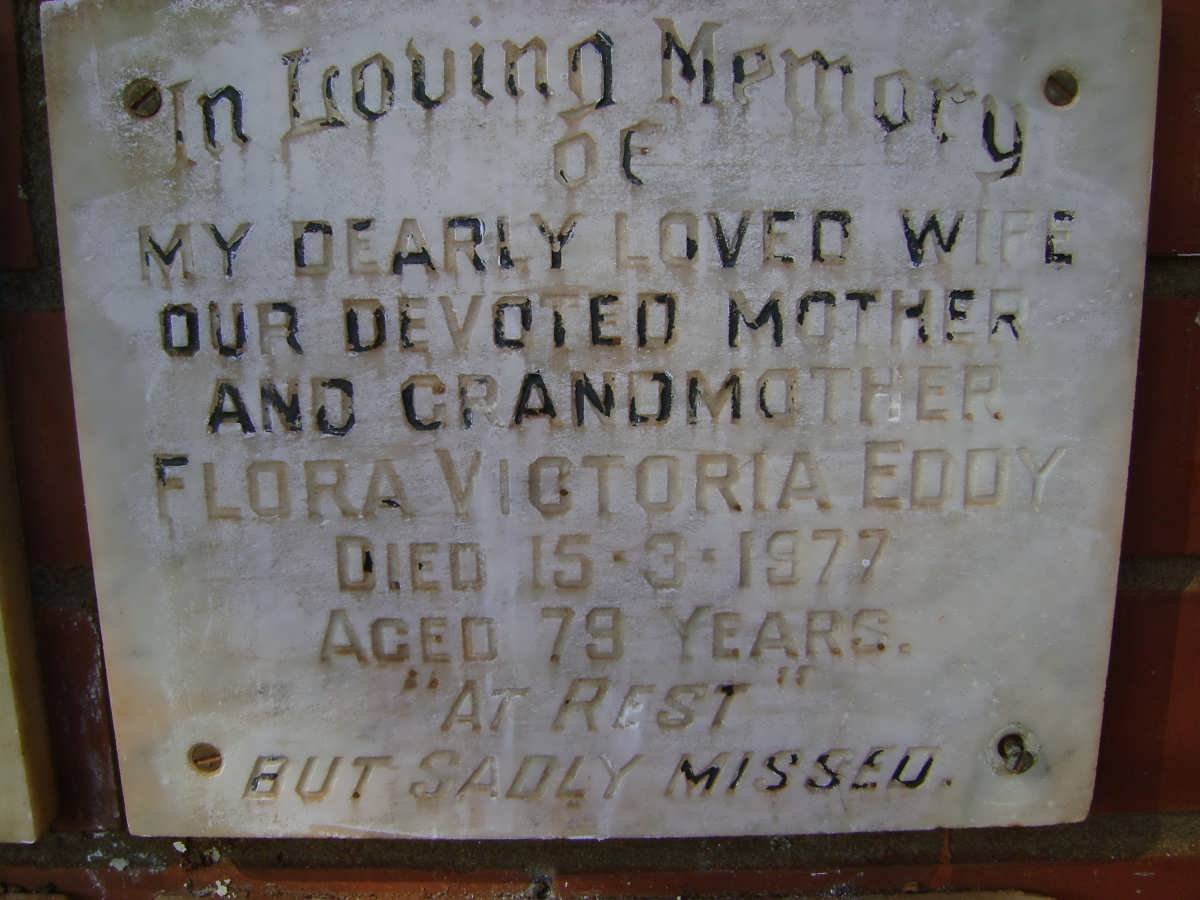 In Loving Memory
of
MY DEARLY LOVED WIFE
OUR DEVOTED MOTHER
AND GRANDMOTHER
FLORA VICTORIA EDDY
DIED 15·3·1977
AGED 79 YEARS.
"AT REST"
BUT SADLY MISSED.